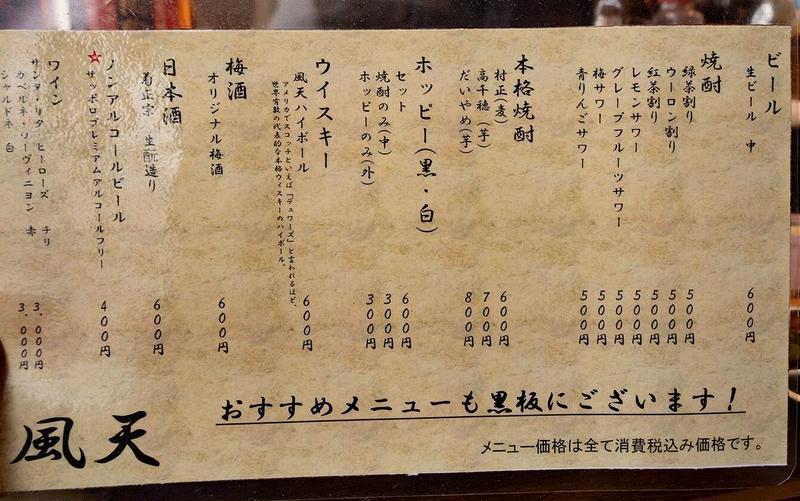 ビール
生ビール 中 600円
焼酎
緑茶割り 500円
ウーロン割り 500円
紅茶割り 500円
レモンサワー 500円
グレープフルーツサワー 500円
梅サワー 500円
青りんごサワー 500円
本格焼酎
村正(麦) 600円
高千穂(芋) 700円
だいやめ(芋) 800円
ホッピー(黒・白)
セット 600円
焼酎のみ(中) 300円
ホッピーのみ(外) 300円
ウイスキー
風天ハイボール 600円
アメリカでスコッチといえば「デュワーズ」と言われるほど、
世界有数の代表的な本格ウイスキーのハイボール。
梅酒
オリジナル梅酒 600円
日本酒
菊正宗 生酛造り 600円
ノンアルコールビール
★サッポロプレミアムアルコールフリー 400円
ワイン
サンタ・リタ ヒーローズ チリ
カベルネ・ソーヴィニヨン 赤 3.000円
シャルドネ 白 3.000円
おすすめメニューも黒板にございます!
メニュー価格は全て消費税込み価格です。
風天